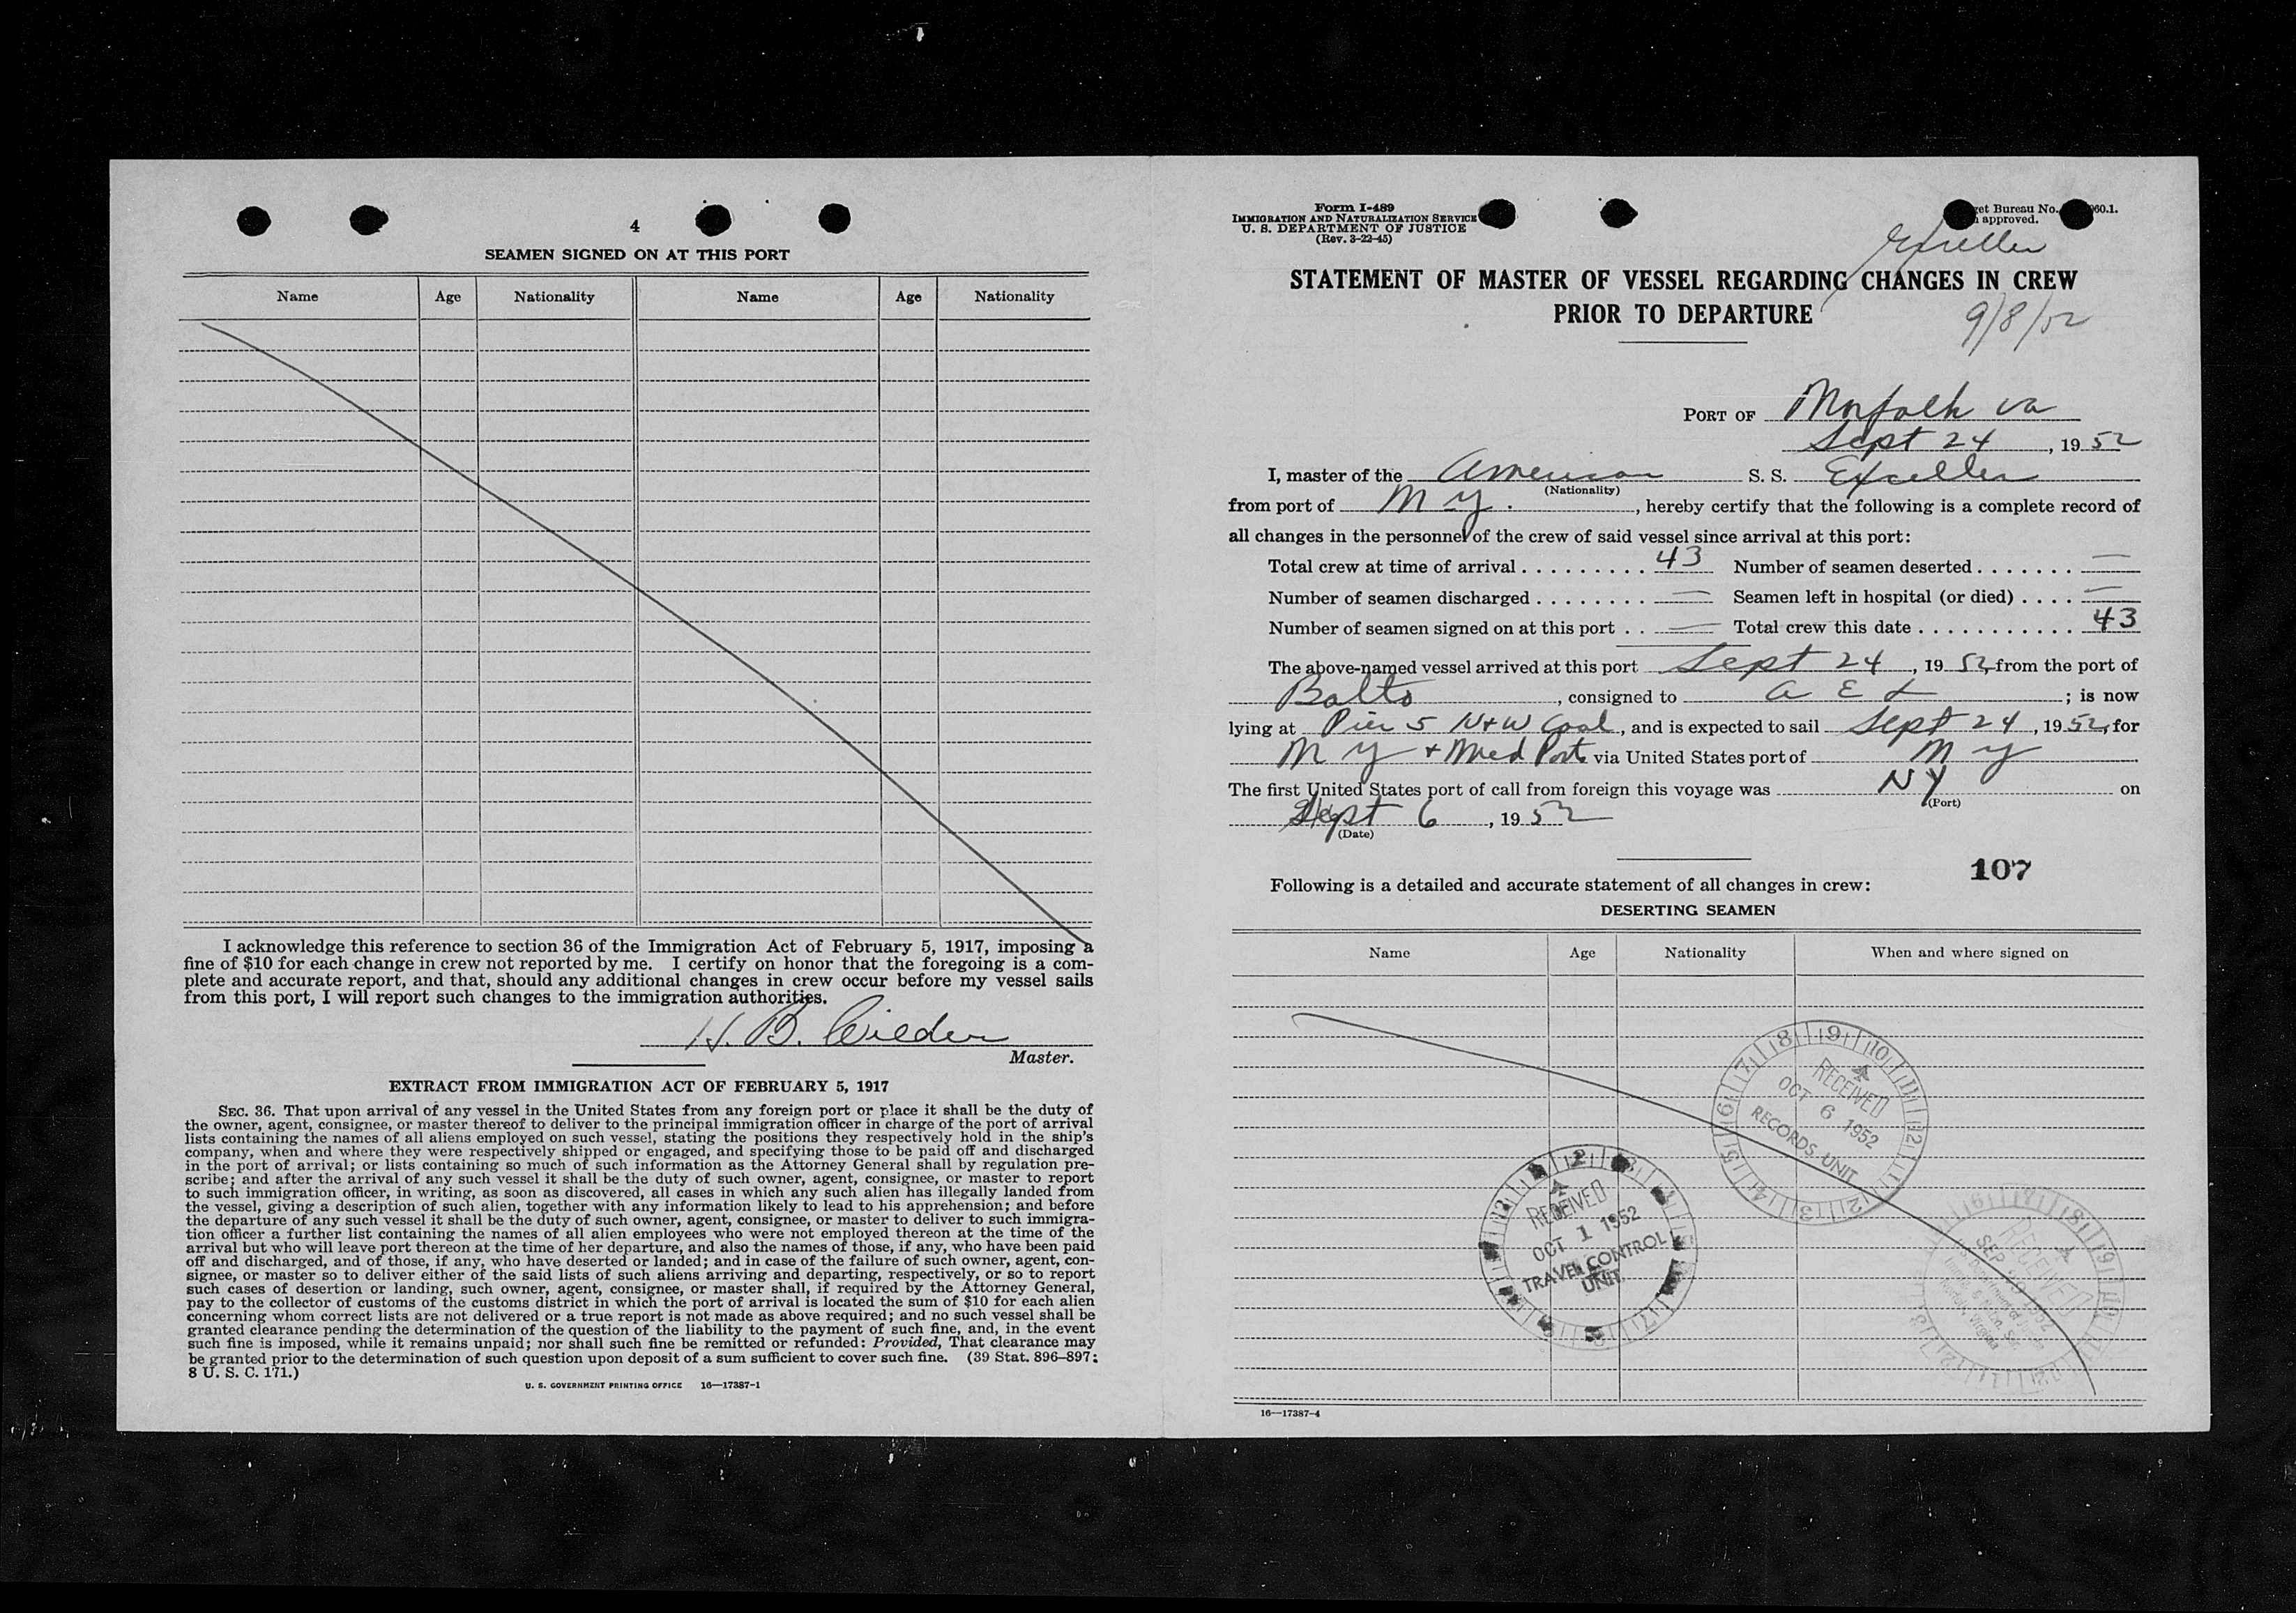 4
SEAMEN SIGNED ON AT THIS PORT
Name Age Nationality Name Age Nationality
I acknowledge this reference to section 36 of the Immigration Act of February 5, 1917, imposing a
fine of $10 for each change in crew not reported by me. I certify on honor that the foregoing is a com-
plete and accurate report, and that, should any additional changes in crew occur before my vessel sails
from this port, I will report such changes to the immigration authorities.
H. B.
Master.
EXTRACT FROM IMMIGRATION ACT OF FEBRUARY 5, 1917
SEC. 36. That upon arrival of any vessel in the United States from any foreign port or place it shall be the duty of
the owner, agent, consignee, or master thereof to deliver to the principal immigration officer in charge of the port of arrival
lists containing the names of all aliens employed on such vessel, stating the positions they respectively hold in the ship's
company, when and where they were respectively shipped or engaged, and specifying those to be paid off and discharged
in the port of arrival; or lists containing so much of such information as the Attorney General shall by regulation pre-
scribe; and after the arrival of any such vessel it shall be the duty of such owner, agent, consignee, or master to report
to such immigration officer, in writing, as soon as discovered, all cases in which any such alien has illegally landed from
the vessel, giving a description of such alien, together with any information likely to lead to his apprehension; and before
the departure of any such vessel it shall be the duty of such owner, agent, consignee, or master to deliver to such immigra-
tion officer a further list containing the names of all alien employees who were not employed thereon at the time of the
arrival but who will leave port thereon at the time of her departure, and also the names of those, if any, who have been paid
off and discharged, and of those, if any, who have deserted or landed; and in case of the failure of such owner, agent, con-
signee, or master so to deliver either of the said lists of such aliens arriving and departing, respectively, or so to report
such cases of desertion or landing, such owner, agent, consignee, or master shall, if required by the Attorney General,
pay to the collector of customs of the customs district in which the port of arrival is located the sum of $10 for each alien
concerning whom correct lists are not delivered or a true report is not made as above required; and no such vessel shall be
granted clearance pending the determination of the question of the liability to the payment of such fine, and, in the event
such fine is imposed, while it remains unpaid; nor shall such fine be remitted or refunded: Provided, That clearance may
be granted prior to the determination of such question upon deposit of a sum sufficient to cover such fine. (39 Stat. 896–897;
8 U. S. C. 171.)
U. S. GOVERNMENT PRINTING OFFICE 16—17387-1
Form I-489
IMMIGRATION AND NATURALIZATION SERVICE
U. S. DEPARTMENT OF JUSTICE
(Rev. 3-22-45)
Bureau No. 60.1.
approved.
Exceller
STATEMENT OF MASTER OF VESSEL REGARDING CHANGES IN CREW
PRIOR TO DEPARTURE
9/8/52
PORT OF Norfolk Va
Sept 24, 1952
I, master of the American S. S. Exceller
(Nationality)
from port of N Y., hereby certify that the following is a complete record of
all changes in the personnel of the crew of said vessel since arrival at this port:
Total crew at time of arrival . . . . . . . . . 43 Number of seamen deserted . . . . . . . —
Number of seamen discharged . . . . . . . . — Seamen left in hospital (or died) . . . . —
Number of seamen signed on at this port . . — Total crew this date . . . . . . . . . . . 43
The above-named vessel arrived at this port Sept 24, 1952, from the port of
Balto, consigned to A E L; is now
lying at Pier 5 N+W Coal, and is expected to sail Sept 24, 1952, for
N Y + Med Ports via United States port of N Y
The first United States port of call from foreign this voyage was NY on
(Port)
Sept 6, 1952
(Date)
107
Following is a detailed and accurate statement of all changes in crew:
DESERTING SEAMEN
Name Age Nationality When and where signed on
RECEIVED
OCT 6 1952
RECORDS UNIT
RECEIVED
OCT 1 1952
TRAVEL CONTROL
UNIT
RECEIVED
SEP 1952
Norfolk, Virginia
16—17387-4